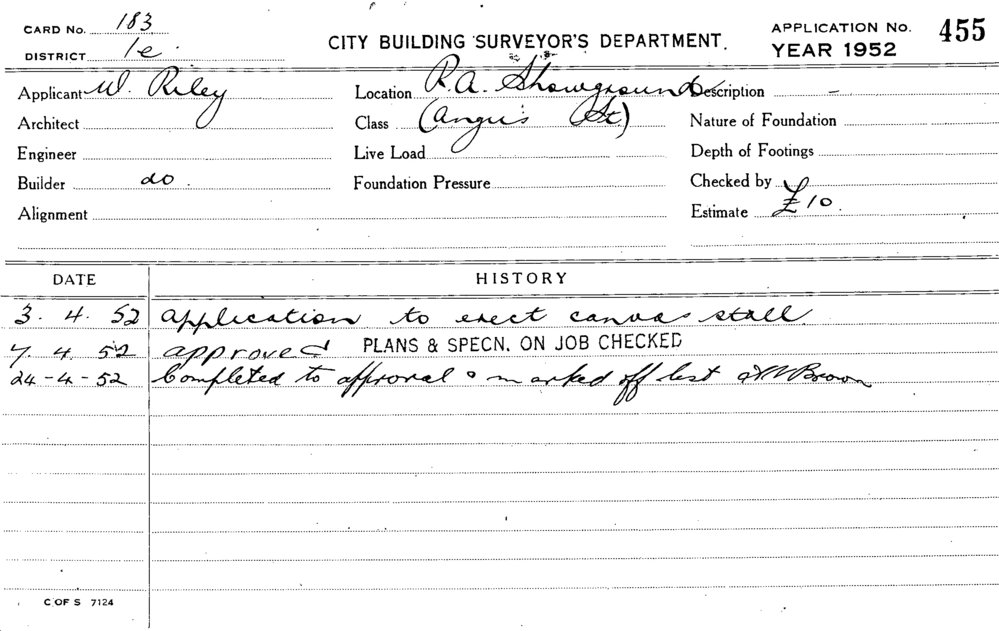 CARD No. 183
DISTRICT 1e.
CITY BUILDING SURVEYOR'S DEPARTMENT.
APPLICATION No. 455
YEAR 1952
Applicant W. Riley
Location R.A. Showground
Description -
Architect
Class (Angus St)
Nature of Foundation
Engineer
Live Load
Depth of Footings
Builder do.
Foundation Pressure
Checked by
Alignment
Estimate £10.
DATE HISTORY
3. 4. 52 application to erect canvas stall.
7. 4. 52 approved PLANS & SPECN. ON JOB CHECKED
24-4-52 Completed to approval & marked off list Brown
C OF S 7124